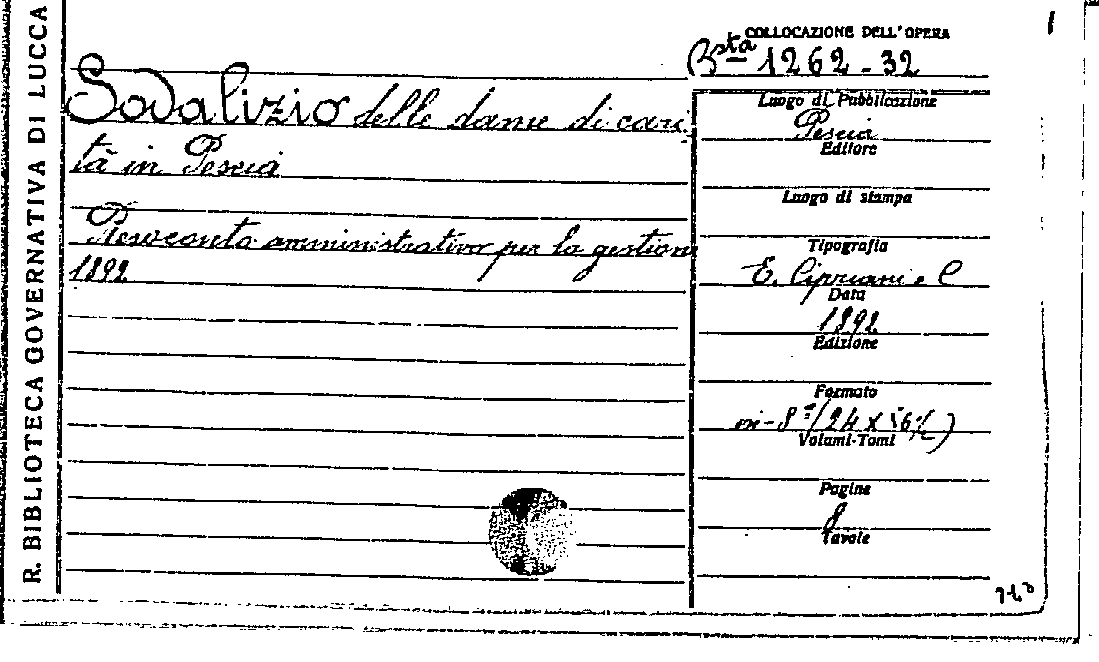 R. BIBLIOTECA GOVERNATIVA DI LUCCA
1
COLLOCAZIONE DELL'OPERA
Bsta 1262-32
Sodalizio delle dame di cari
tà in Pescia
Resoconto amministrativo per la gestione
1892
Luogo di Pubblicazione
Pescia
Editore
Luogo di stampa
Tipografia
E. Cipriani e C
Data
1892
Edizione
Formato
in-8°(24 X 16½)
Volumi-Tomi
Pagine
8
Tavole